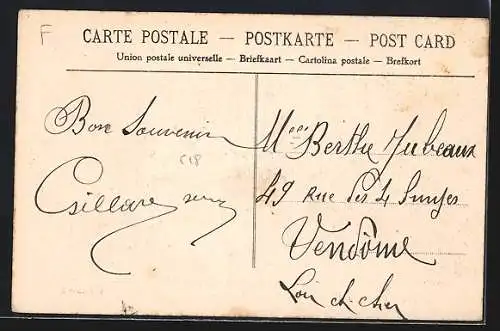 F
CARTE POSTALE — POSTKARTE — POST CARD
Union postale universelle — Briefkaart — Cartolina postale — Brefkort
Bon Souvenir
C18
Mlle Berthe Jubeaux
49 Rue des 4
Vendôme
Loir et cher